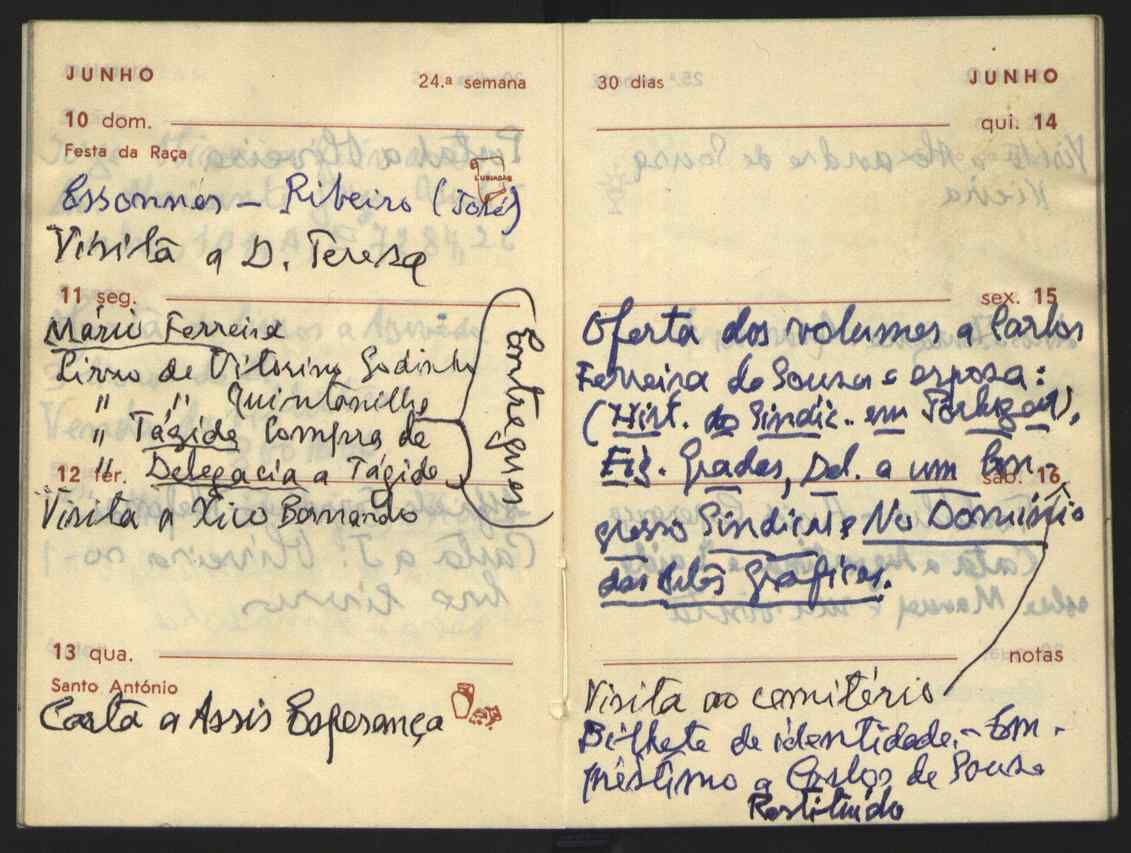 JUNHO
24.ª semana
10 dom.
Festa da Raça
LUSIADAS
Ribeiro (José)
Visita a D. Teresa
11 seg.
Mário Ferreira
Livro de Vitorino Godinho
" " Quintanilha
" Tágide Compra de
12 ter. " Delegacia a Tágide
Entregues
Visita a Xico Bernardo
13 qua.
Santo António
Carta a Assis Esperança
30 dias
JUNHO
qui. 14
sex. 15
Oferta dos volumes a Carlos
Ferreira de Sousa e esposa:
(Hist. do Sindic. em Portugal),
Fig. Gradas, Del. a um Con-
sáb. 16
gresso Sindical e No Domínio
das Artes Gráficas.
notas
Visita ao cemitério
Bilhete de identidade. - Em-
préstimo a Carlos de Sousa
Restituído